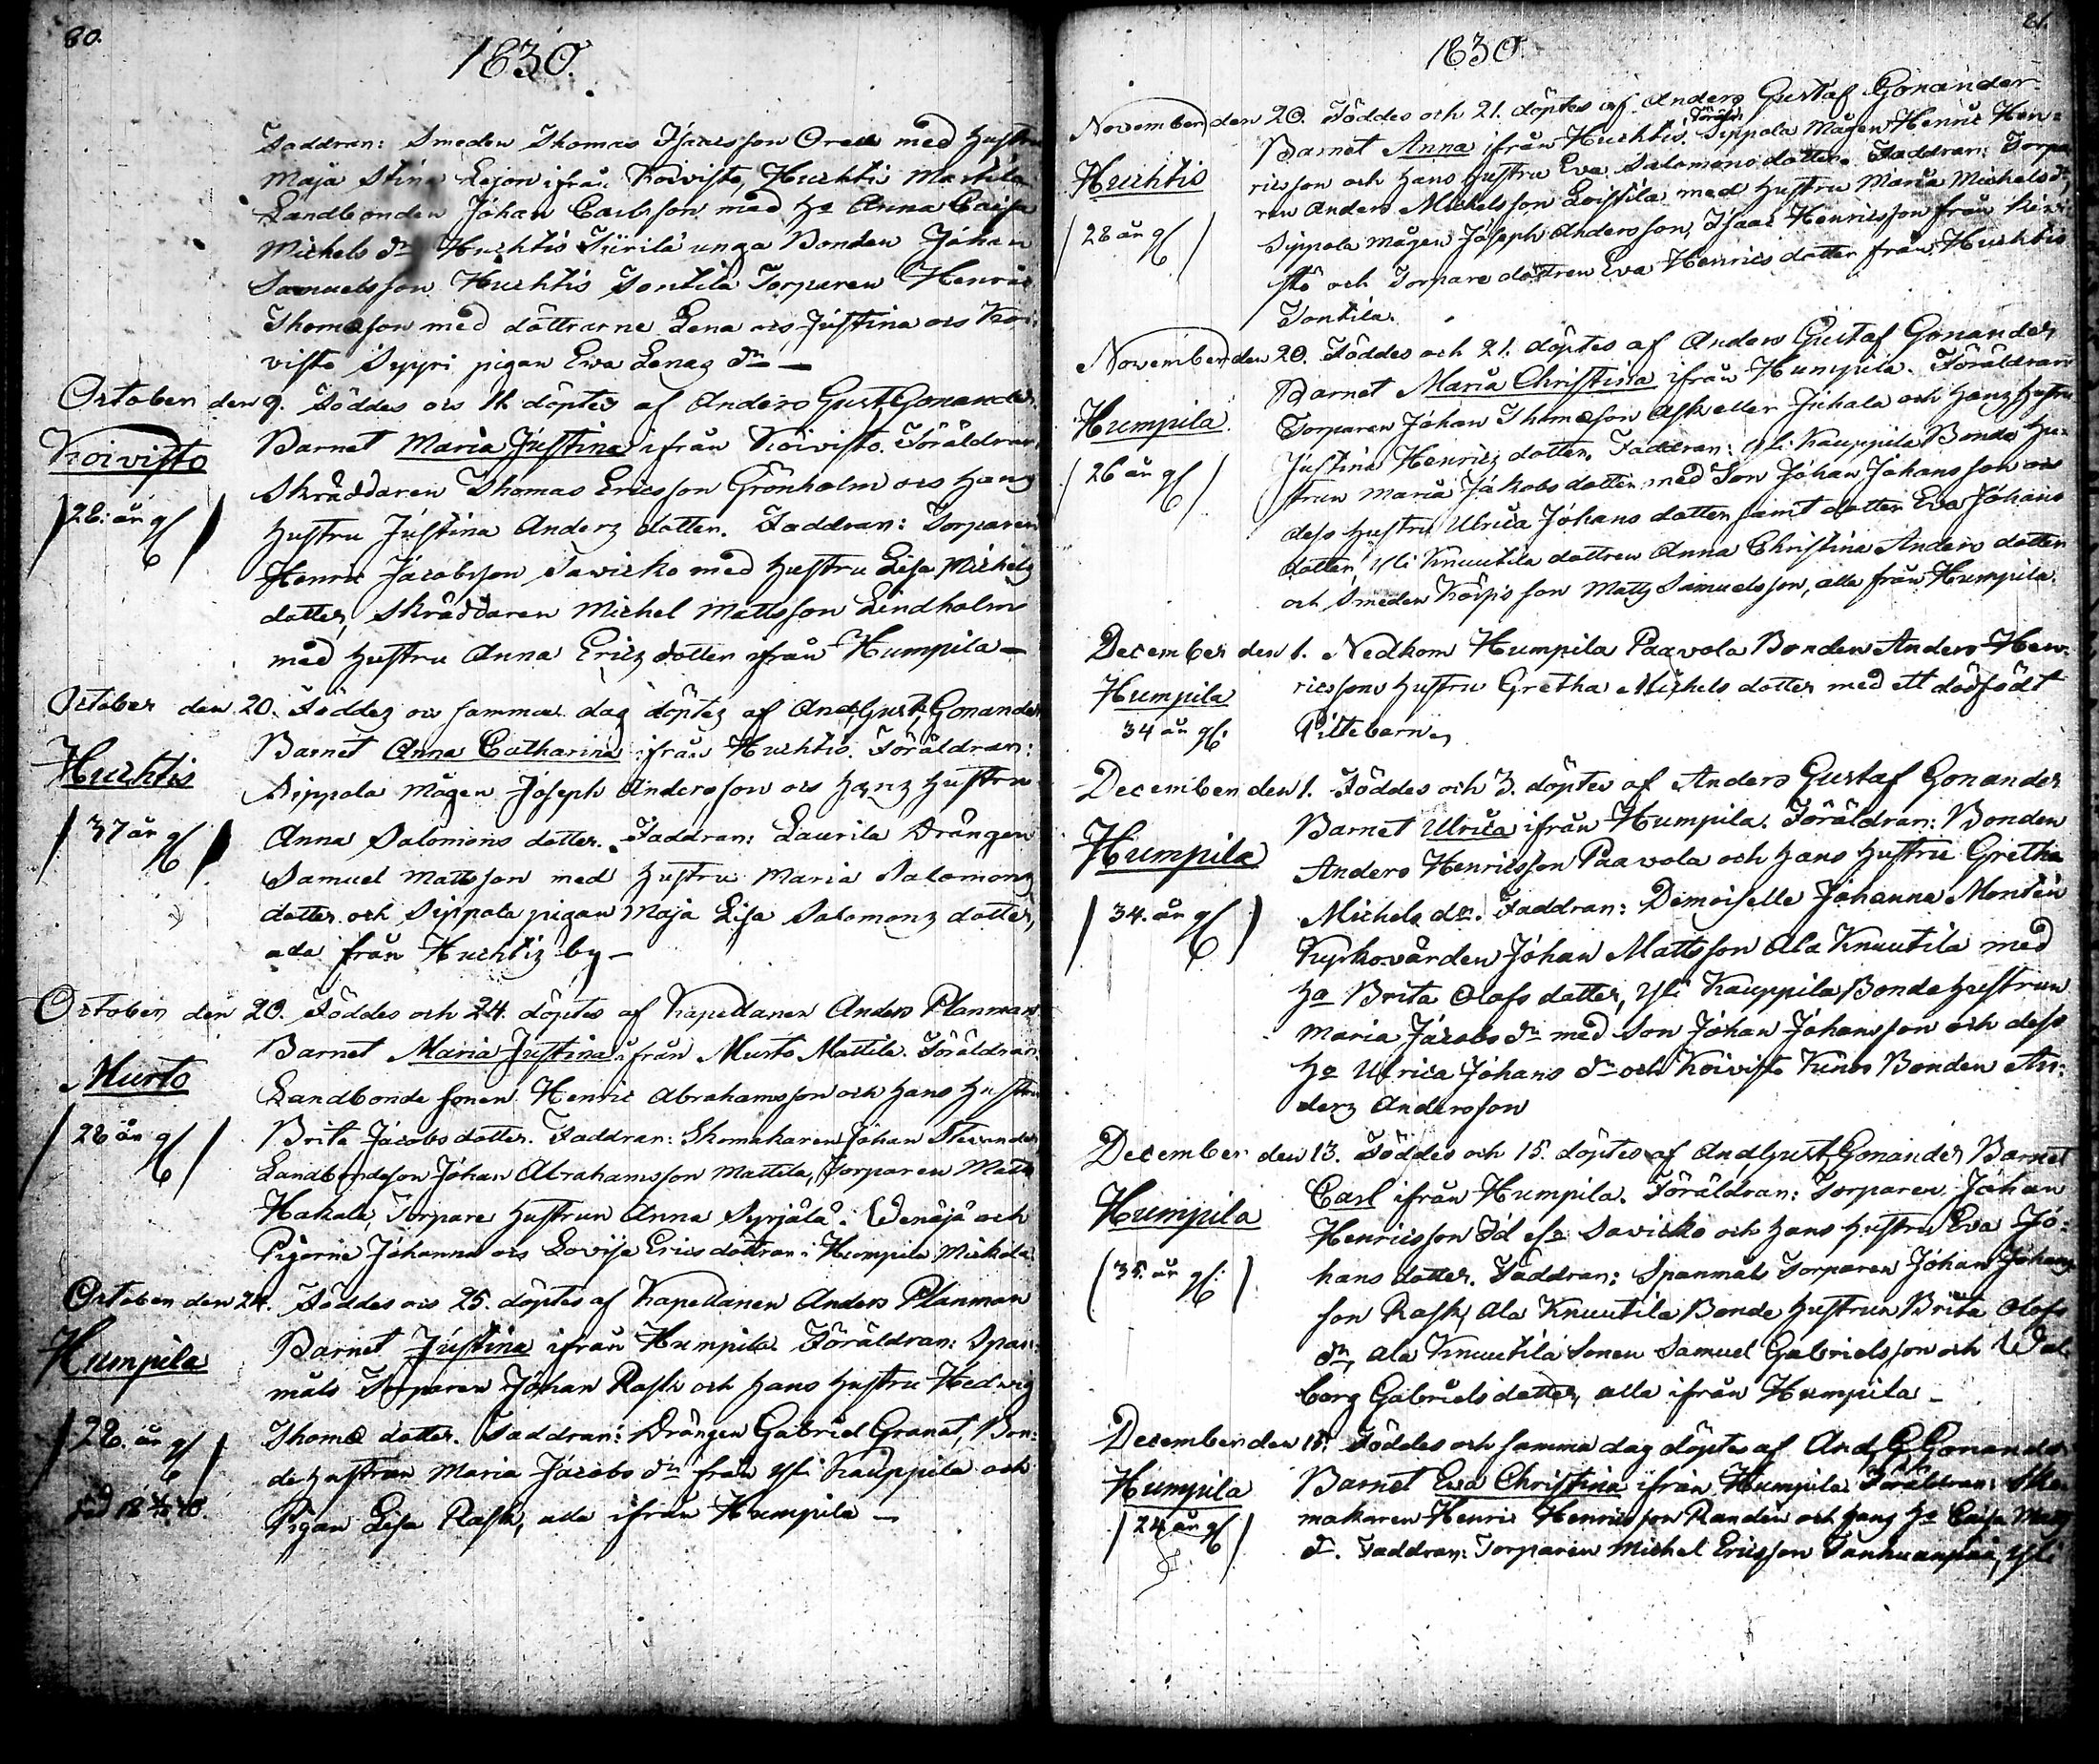 80.
1830.
Faddran: Smeden Thomas Isacsson Oreu med hustru
Maja Stina Lejon ifrån Koivisto, Huchtis Mattila
Landbonden Johan Carlsson med ha Anna Caisa
Michels dr Huchtis Tiirilä unga Bonden Johan
Samuelsson Huchtis Sontila Torparen Henric
Thomæson med döttrarne Lena ocs Justina ocs Koi:
visto Seppri pigan Ewa Lenaz dr —
October den 9. Föddes ocs 11. döptes af Anders Gust. Gonander
Koivisto
Barnet Maria Justina ifrån Koivisto. Föräldrar:
Skräddaren Thomas Ericsson Grönholm ocs hanz
/28. år gl/
hustru Justina Anderz dotter. Faddran: Torparen
Henric Jacobsson Sawicko med hustru Lisa Michelz
dotter, Skräddaren Michel Mattsson Lindholm
med hustru Anna Ericz dotter ifrån Humpila —
October den 20. Föddez ocs samma dag döptez af And. Gust. Gonander
Barnet Anna Catharina ifrån Huchtis. Föräldran:
Huchtis
Sippola Mågen Joseph Andersson ocs hanz hustru
/37 år gl/
Anna Salomons dotter. Faddran: Laurila Drängen
Samuel Mattsson med hustru Maria Salomonz
dotter och Sippola pigan Maja Lisa Salomonz dotter,
alla från Huchtiz by —
October den 20. Föddes och 24. döptes af Kapellanen Anders Planman
Barnet Maria Justina ifrån Murto Mattila. Föräldran
Murto
Landbonde sonen Henric Abrahamsson och hans hustru
/28 år gl/
Brita Jacobs dotter. Faddran: Skomakaren Johan
Landbondeson Johan Abrahamsson Mattila, Torparen Matts
Hakala, Torpare hustrun Anna Syrjälä. Wenäjä och
Pigorne Johanna ocs Lovisa Erics döttran: Humpila Mickola
October den 24. Föddes ocs 25. döptes af Kapellanen Anders Planman
Humpila
Barnet Justina ifrån Humpila. Föräldran: Span:
måls Torparen Johan Rask och hans hustru Hedwig
/28. år gl/
Thomæ dotter. Faddran: Drängen Gabriel Granat, Bon:
de hustrun Maria Jacobs dr från Yli Kauppila och
Pigan Lisa Rask, alla ifrån Humpila —
81.
1830.
November den 20. Föddes och 21. döptes af Anders Gustaf Gonander
Barnet Anna ifrån Huchtis. Föräldr: Sippola Mågen Henric Hen:
Huchtis
ricsson och hans hustru Eva Salomons dotter. Faddran: Torpa
ren Anders Michelsson Loistila med hustru Maria Michels dr,
/28 år gl/
Sippola mågen Joseph Andersson, Isaac Henricsson från
och Torpare dottren Eva Henrics dotter från Huchtis
Sontila.
November den 20. Föddes och 21. döptes af Anders Gustaf Gonander
Barnet Maria Christina ifrån Humpila. Föräldran
Humpila
Torparen Johan Thomæson Ask eller Juhala och hanz hustru
/26 år gl/
Justina Henricz dotter. Faddran: Yli Kauppila Bonde hu:
strun Maria Jakobs dotter med Son Johan Johansson ocs
dess hustru Ulrica Johans dotter samt dotter Eva Johans
dotter, Yli Knuutila dottren Anna Christina Anders dotter
och Smeden Körpis son Matts Samuelsson, alla från Humpila.
December den 1. Nedkom Humpila Paavola Bonden Anders Hen:
Humpila
ricssons hustru Gretha Michels dotter med ett dödfödt
34 år gl:
Piltebarn,
December den 1. Föddes och 3. döptes af Anders Gustaf Gonander
Barnet Ulrica ifrån Humpila. Föräldran: Bonden
Humpila
Anders Henricsson Paavola och hans hustru Gretha
/34. år gl/
Michels dr. Faddran: Demoiselle Johanna Montin
Kyrkovärden Johan Mattsson Ala Knuutila med
ha Brita Olofs dotter, Yli Kauppila Bonde hustrun
Maria Jacobs dr med Son Johan Johansson och dess
ha Ulrica Johans dr och Koivisto Künos Bonden An:
derz Andersson
December den 13. Föddes och 15. döptes af And. Gust. Gonander Barnet
Carl ifrån Humpila. Föräldran: Torparen Johan
Humpila
Henricsson Id Savicko och hans hustru Eva Jo:
/35. år gl:/
hans dotter. Faddran: Spanmåls Torparen Johan Johans
son Rask, Ala Knuutila Bonde hustrun Brita Olofs
dr, Ala Knuutila Sonen Samuel Gabrielsson och Wal
borg Gabriels dotter, alla ifrån Humpila —
December den 15. Föddes och samma dag döptes af And. G. Gonander
Humpila
Barnet Eva Christina ifrån Humpila Föräldran: Sko
/24 år gl/
makaren Henric Henricsson Randen och hanz ha Caisa Mattz
dr. Faddran: Torparen Michel Ericsson Tanhuanpää, Yli